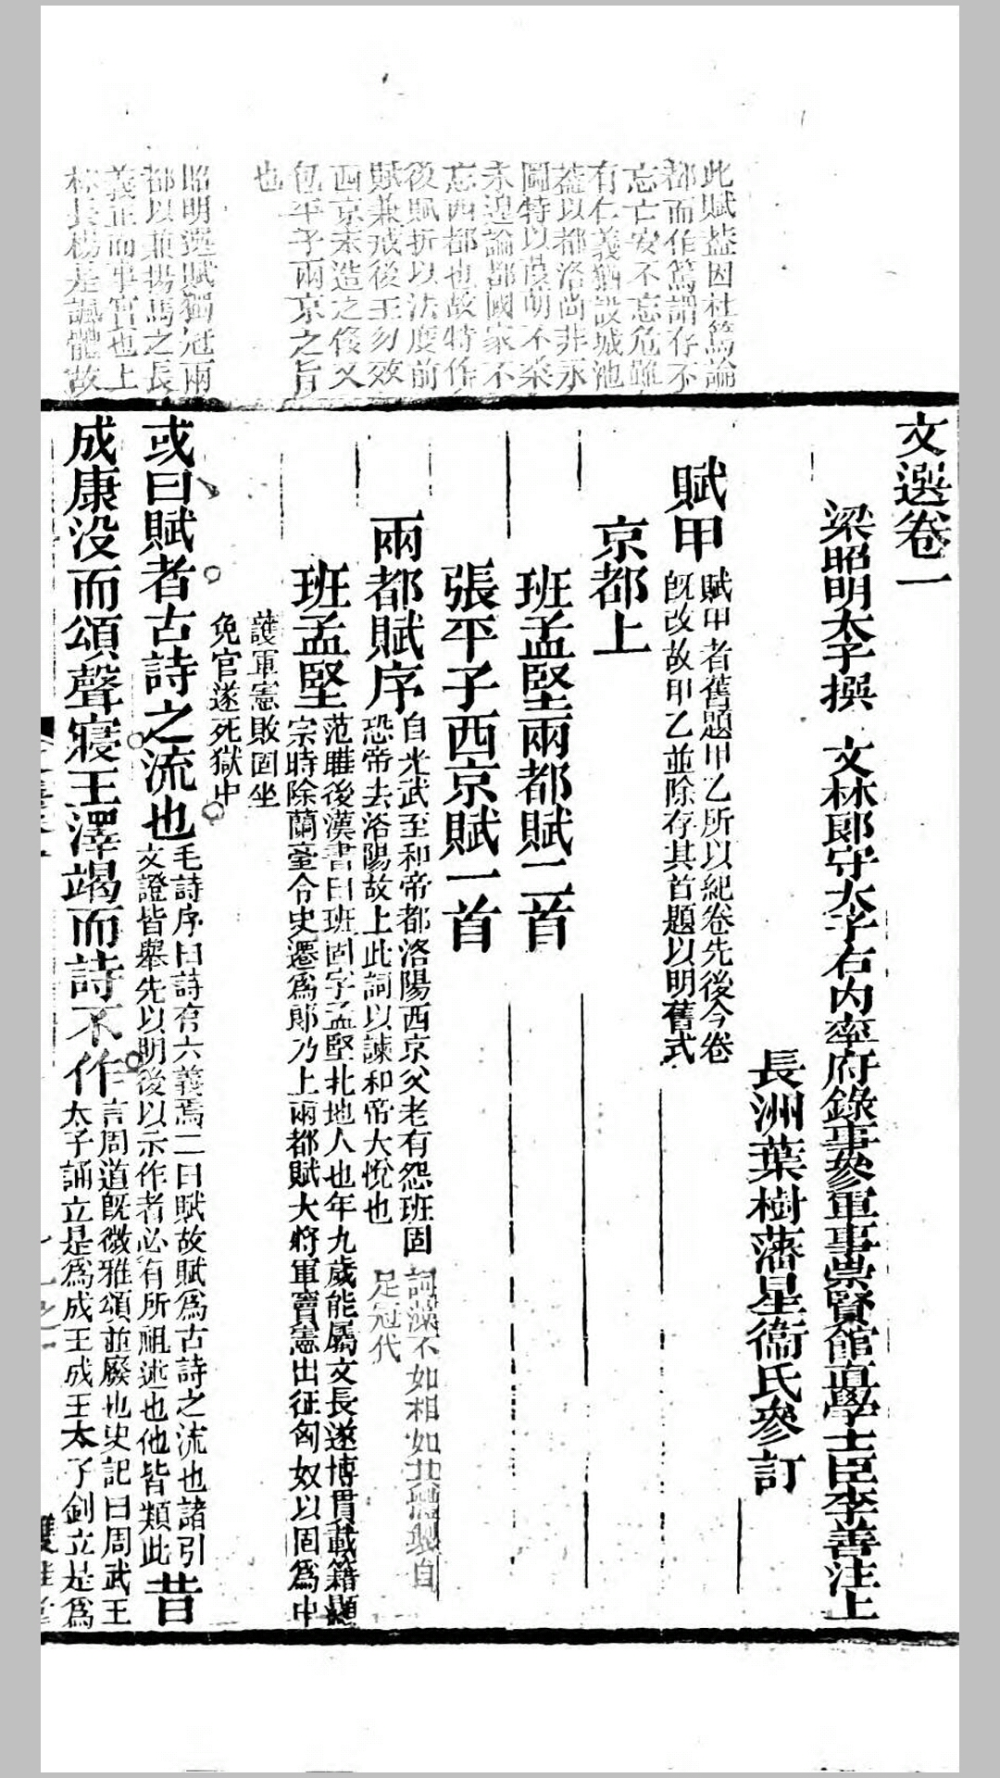 此賦蓋因杜篤論
都而作篤謂存不
忘亡安不忘危雖
有仁義猶設城池
蓋以都洛尚非永
圖特以葭萌不柔
未遑論都國家不
忘西都也故特作
後賦折以法度前
賦兼戒後王勿效
西京末造之侈又
包平子兩京之旨
也
昭明選賦獨冠兩
都以兼揚馬之長
義正而事實也上
林長楊是諷體故
文選卷一
梁昭明太子撰 文林郎守太子右內率府錄事參軍事崇賢館直學士臣李善注上
長洲葉樹藩星衞氏參訂
賦甲
賦甲者舊題甲乙所以紀卷先後今卷
旣改故甲乙並除存其首題以明舊式
京都上
班孟堅兩都賦二首
張平子西京賦一首
兩都賦序
自光武至和帝都洛陽西京父老有怨班固
恐帝去洛陽故上此詞以諫和帝大悅也
詞藻不如相如其體製自
足冠代
班孟堅
范曄後漢書曰班固字孟堅北地人也年九歲能屬文長遂博貫載籍顯
宗時除蘭臺令史遷爲郎乃上兩都賦大將軍竇憲出征匈奴以固爲中
護軍憲敗固坐
免官遂死獄中
或曰賦者古詩之流也
毛詩序曰詩有六義焉二曰賦故賦爲古詩之流也諸引
文證皆舉先以明後以示作者必有所祖述也他皆類此
昔
成康没而頌聲寢王澤竭而詩不作
言周道旣微雅頌並廢也史記曰周武王
太子誦立是爲成王成王太子釗立是爲